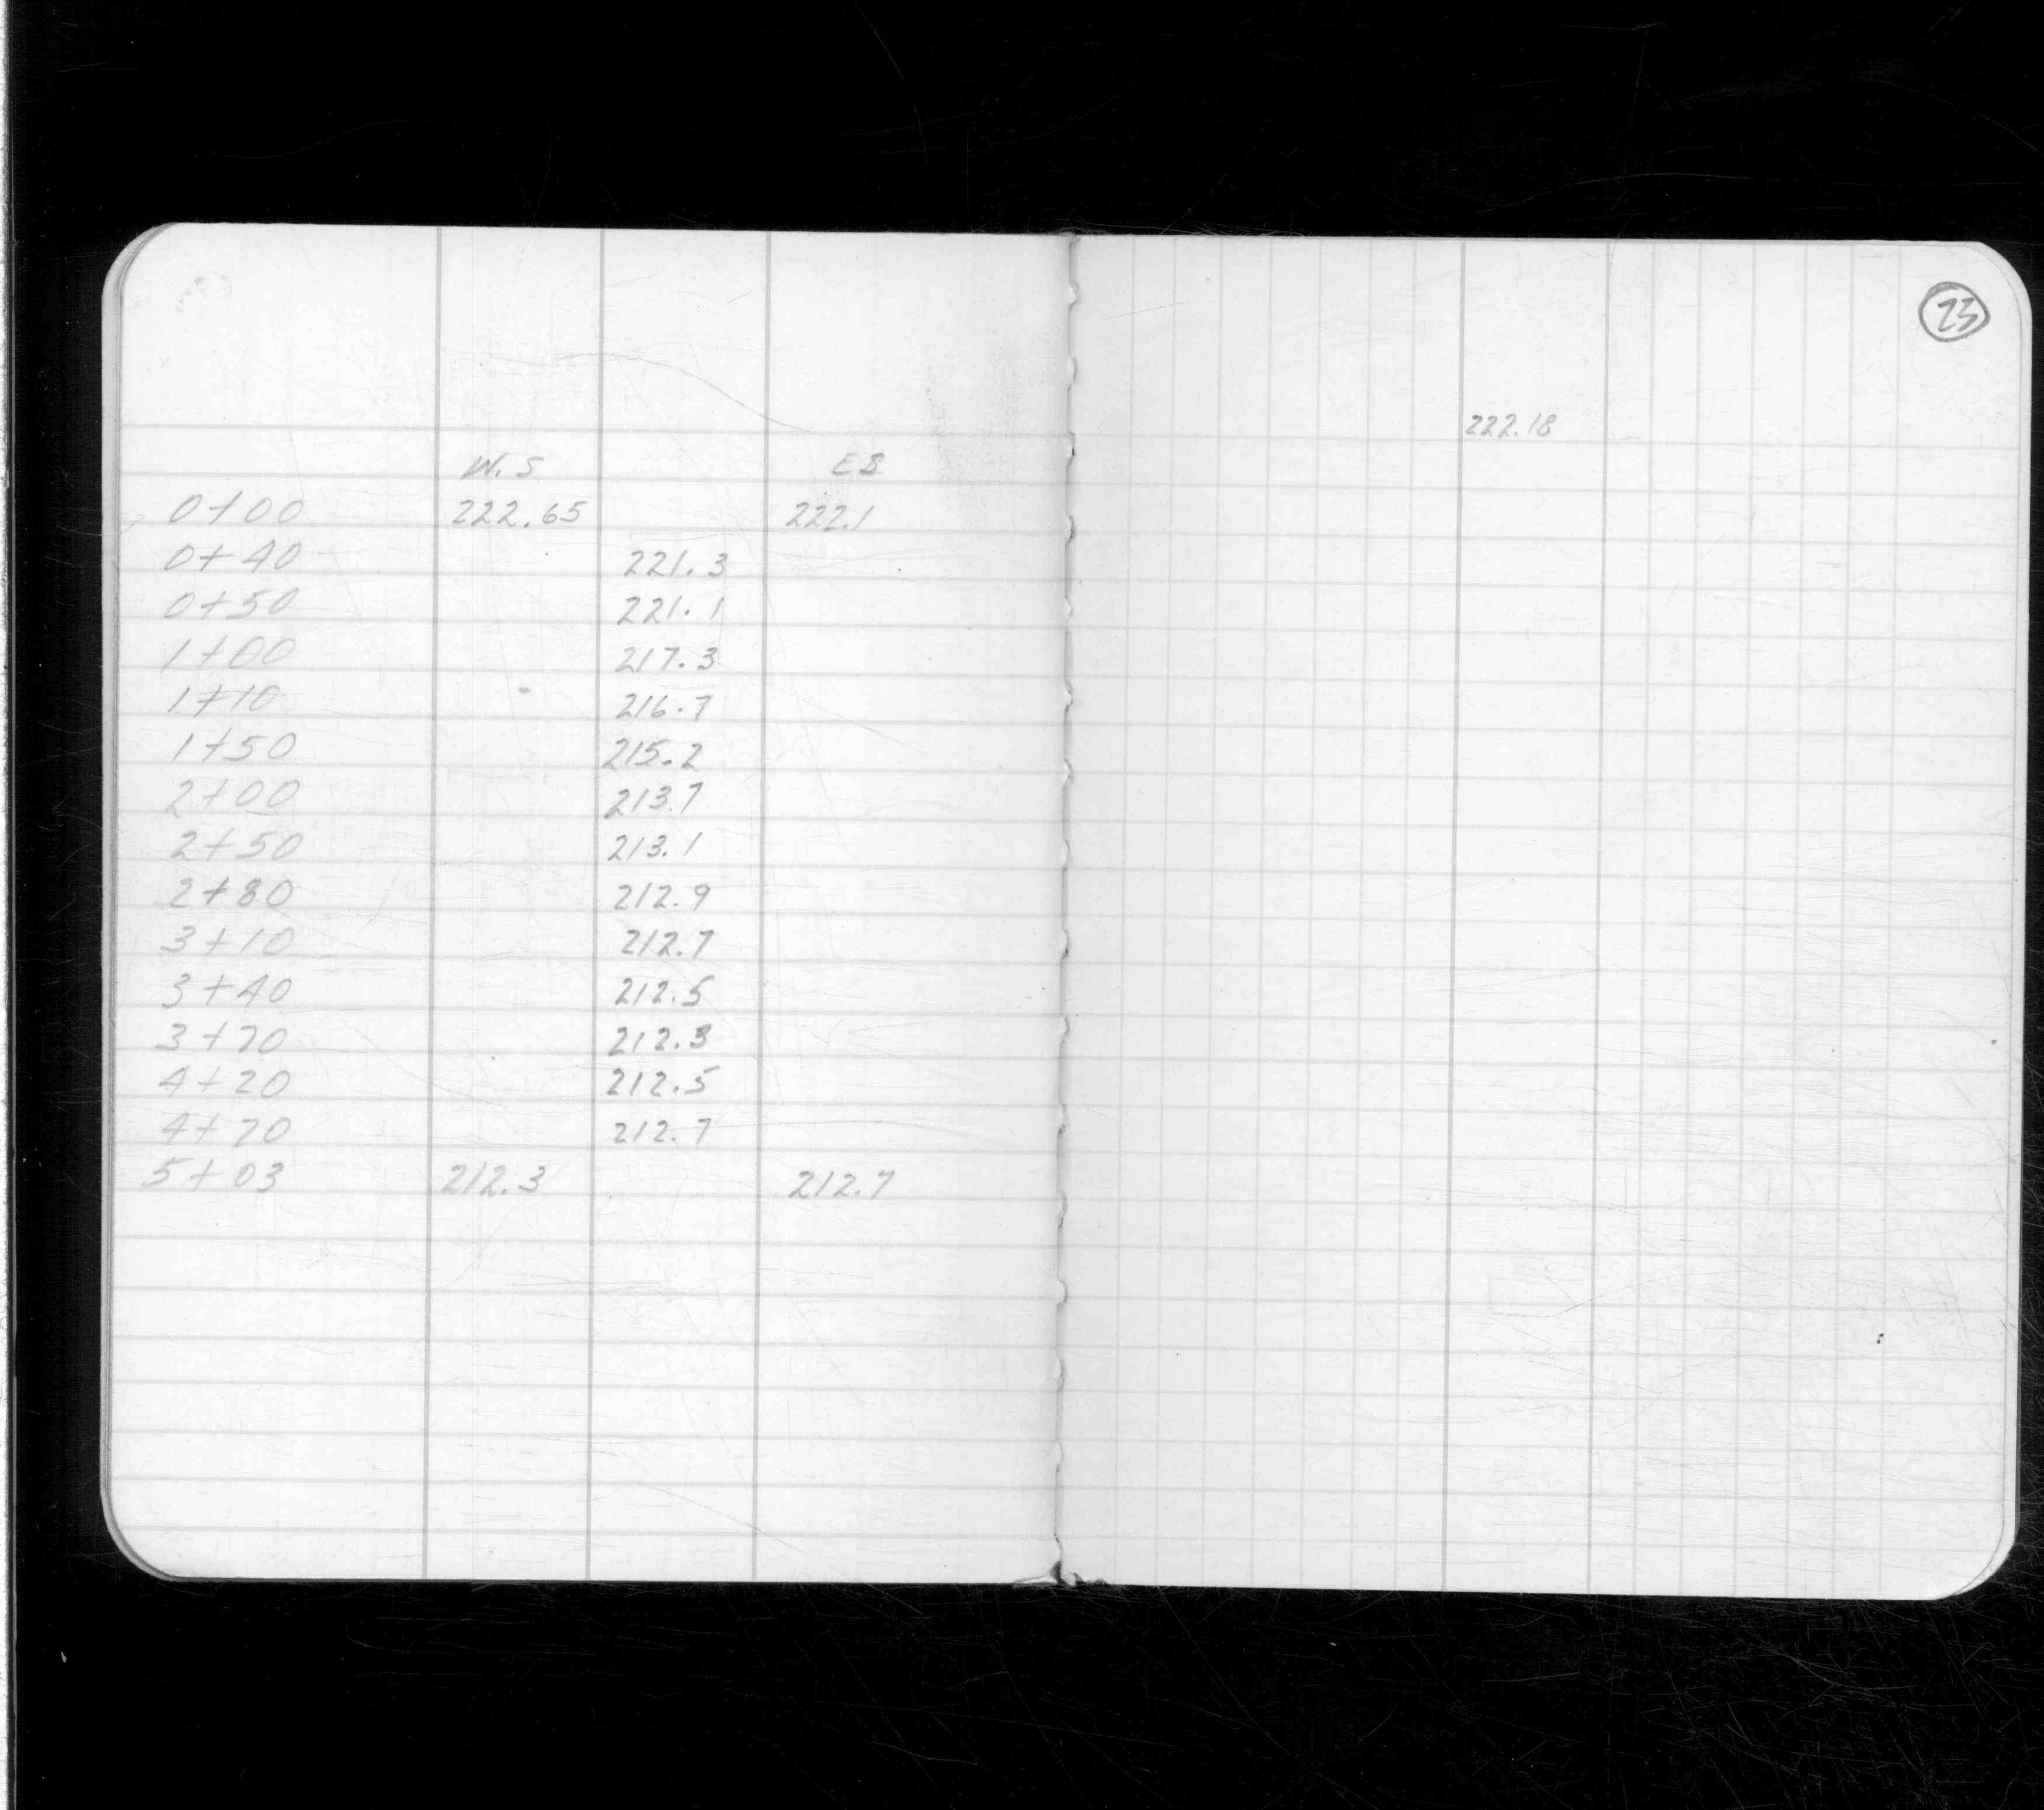 23
222.18
W.S ES
0+00 222.65 222.1
0+40 221.3
0+50 221.1
1+00 217.3
1+10 216.7
1+50 215.2
2+00 213.7
2+50 213.1
2+80 212.9
3+10 212.7
3+40 212.5
3+70 212.3
4+20 212.5
4+70 212.7
5+03 212.3 212.7